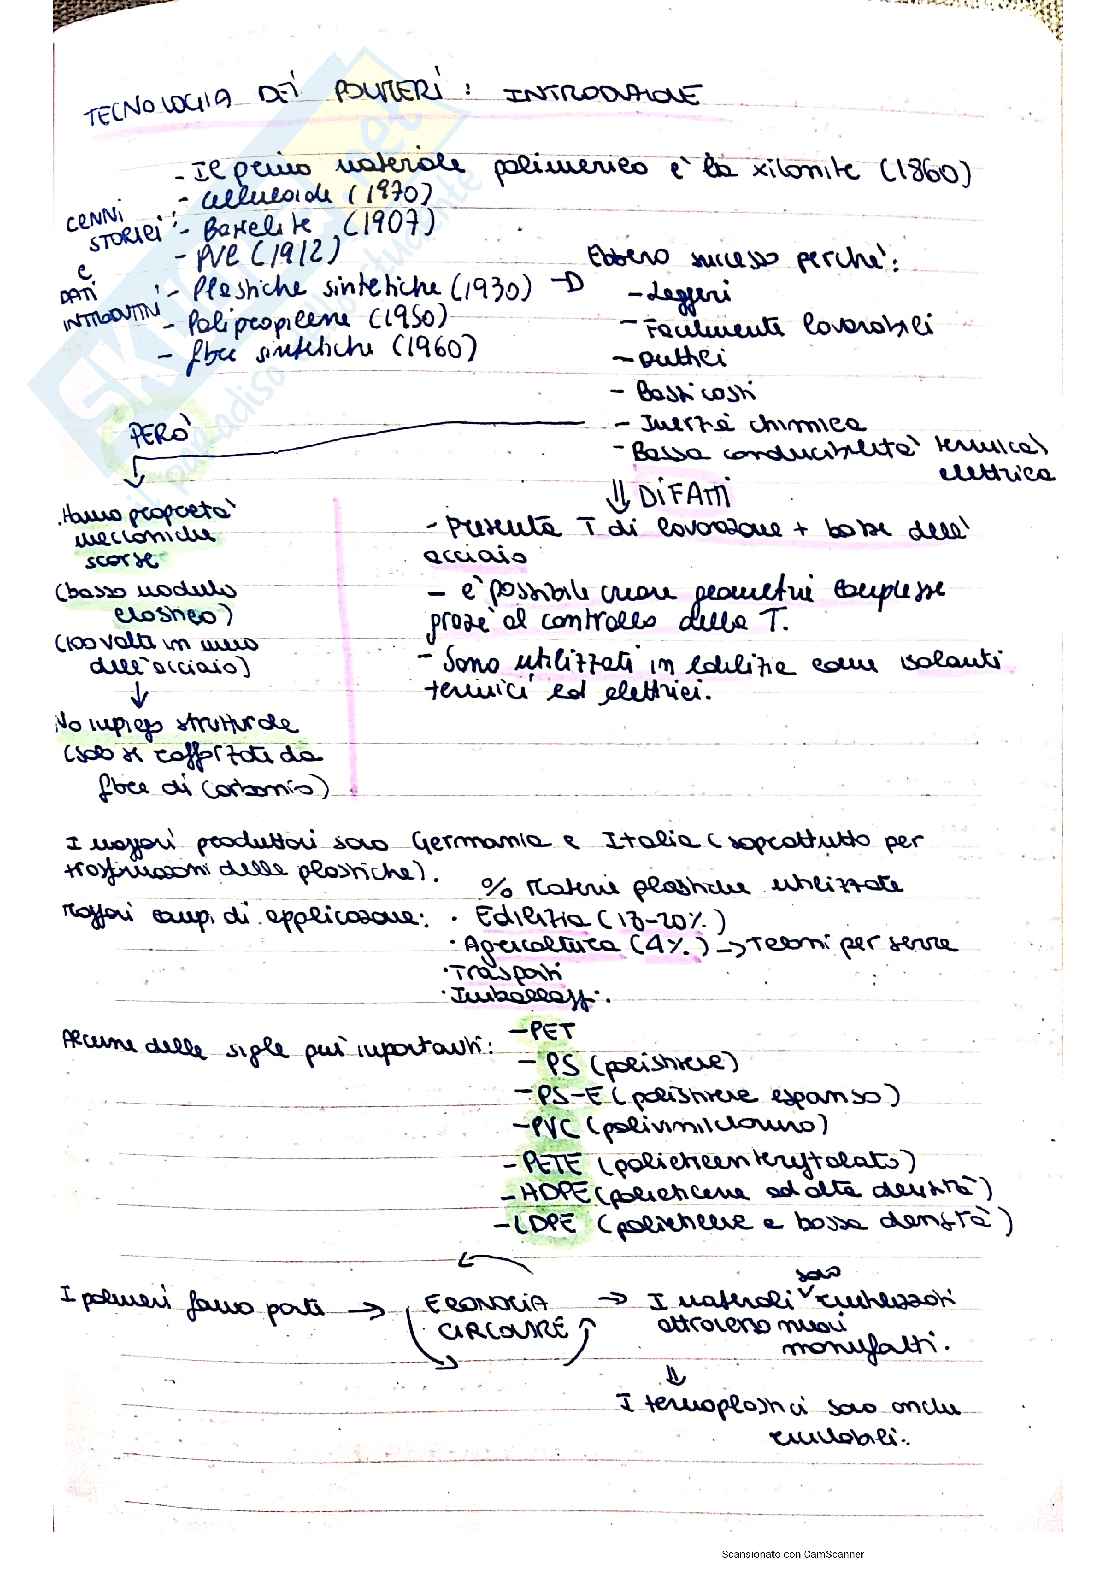 TECNOLOGIA DEI POLIMERI: INTRODUZIONE
CENNI STORICI E DATI INTRODUTTIVI
- Il primo materiale polimerico è la xilonite (1860)
- Celluloide (1970)
- Baxelite (1907)
- PVC (1912)
- Plastiche sintetiche (1930)
- Polipropilene (1950)
- fibre sintetiche (1960)
Ebbero successo perchè:
- Leggeri
- Facilmente lavorabili
- Duttili
- Bassi costi
- Inerzia chimica
- Bassa conducibilità termica
elettrica
PERÒ
Hanno proprietà
meccaniche
scarse
(basso modulo
elastico)
(100 volte in meno
dell'acciaio)
No impiego strutturale
(solo se rafforzati da
fibre di carbonio)
DIFATTI
- Presenta T di lavorazione + basse dell'
acciaio
- è possibile creare geometrie complesse
grazie al controllo della T.
- Sono utilizzati in edilizia come isolanti
termici ed elettrici.
I maggiori produttori sono Germania e Italia (soprattutto per
trasformazioni delle plastiche).
% Materie plastiche utilizzate
Maggiori campi di applicazione: • Edilizia (18-20%)
• Agricoltura (4%) → Teloni per serre
• Trasporti
• Imballaggi.
Alcune delle sigle più importanti:
- PET
- PS (polistirene)
- PS-E (polistirene espanso)
- PVC (polivinilcloruro)
- PETE (polietilentereftalato)
- HDPE (polietilene ad alta densità)
- LDPE (polietilene a bassa densità)
I polimeri fanno parte → ECONOMIA
CIRCOLARE
→ I materiali sono riutilizzati
attraverso nuovi
manufatti.
I termoplastici sono anche
riciclabili.
SKUOLA.net
il paradiso dello studente
Scansionato con CamScanner